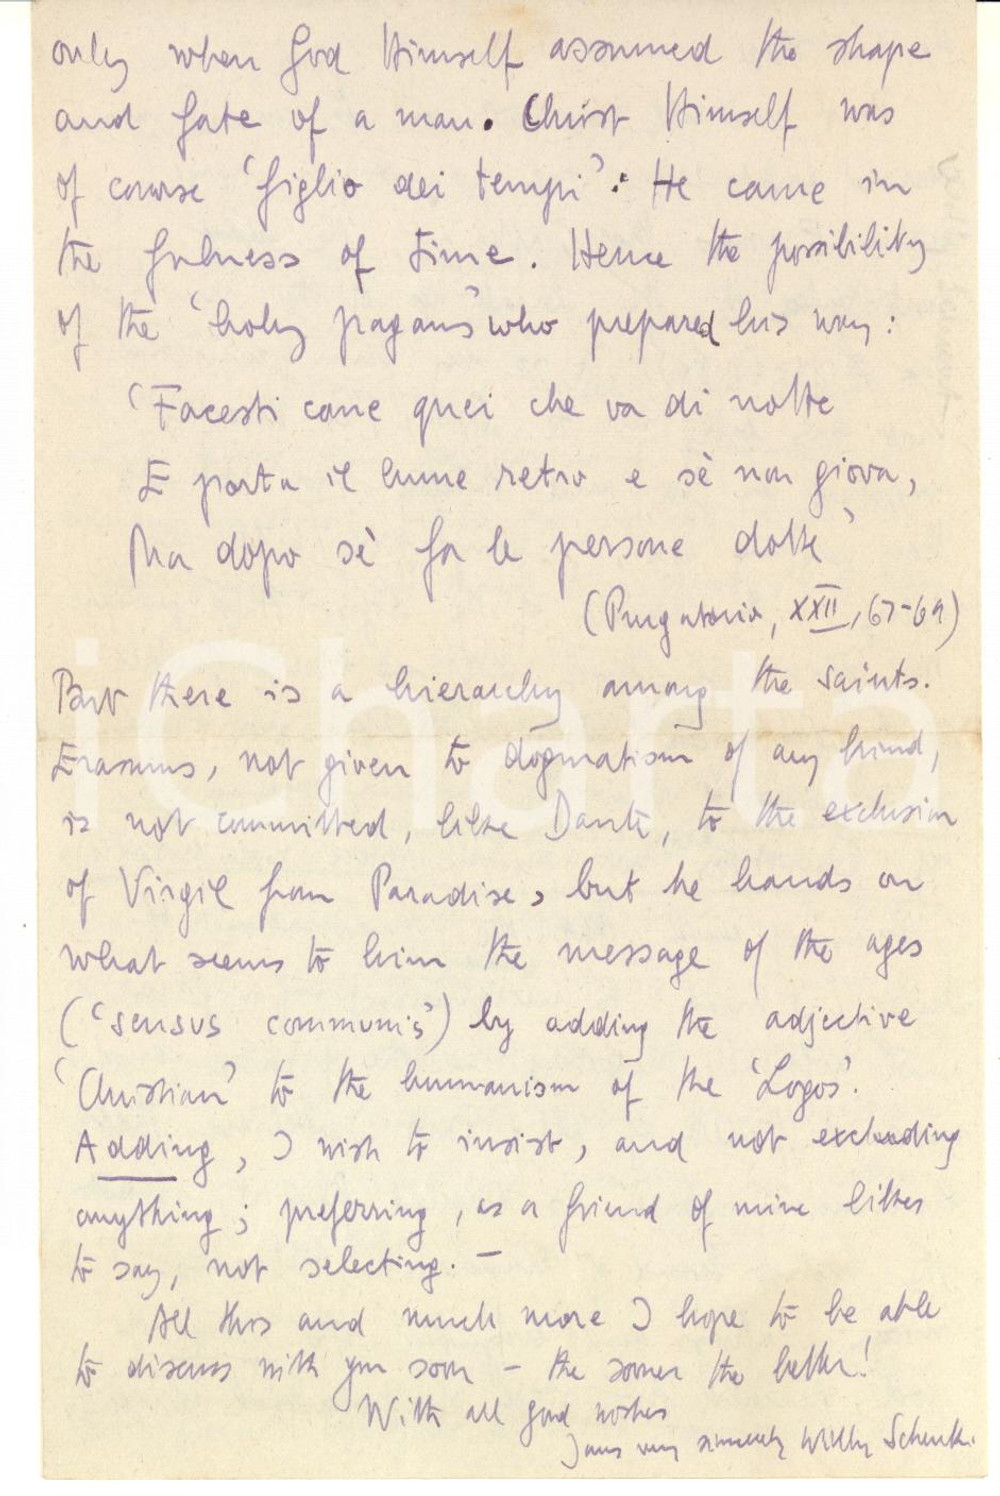 only when God Himself assumed the shape
and fate of a man. Christ Himself was
of course 'figlio dei tempi': He came in
the fulness of time. Hence the possibility
of the 'holy pagans' who prepared his way:
'Facesti come quei che va di notte
E porta il lume retro e sè non giova,
Ma dopo sè fa le persone dotte'
(Purgatorio, XXII, 67-69)
But there is a hierarchy among the saints.
Erasmus, not given to dogmatism of any kind,
is not committed, like Dante, to the exclusion
of Virgil from Paradise, but he hands on
what seems to him the message of the ages
('sensus communis') by adding the adjective
'Christian' to the humanism of the 'Logos'.
Adding, I wish to insist, and not excluding
anything; preferring, as a friend of mine likes
to say, not selecting. —
All this and much more I hope to be able
to discuss with you soon – the sooner the better!
With all good wishes
Yours very sincerely Willy Schenk.
iCharta